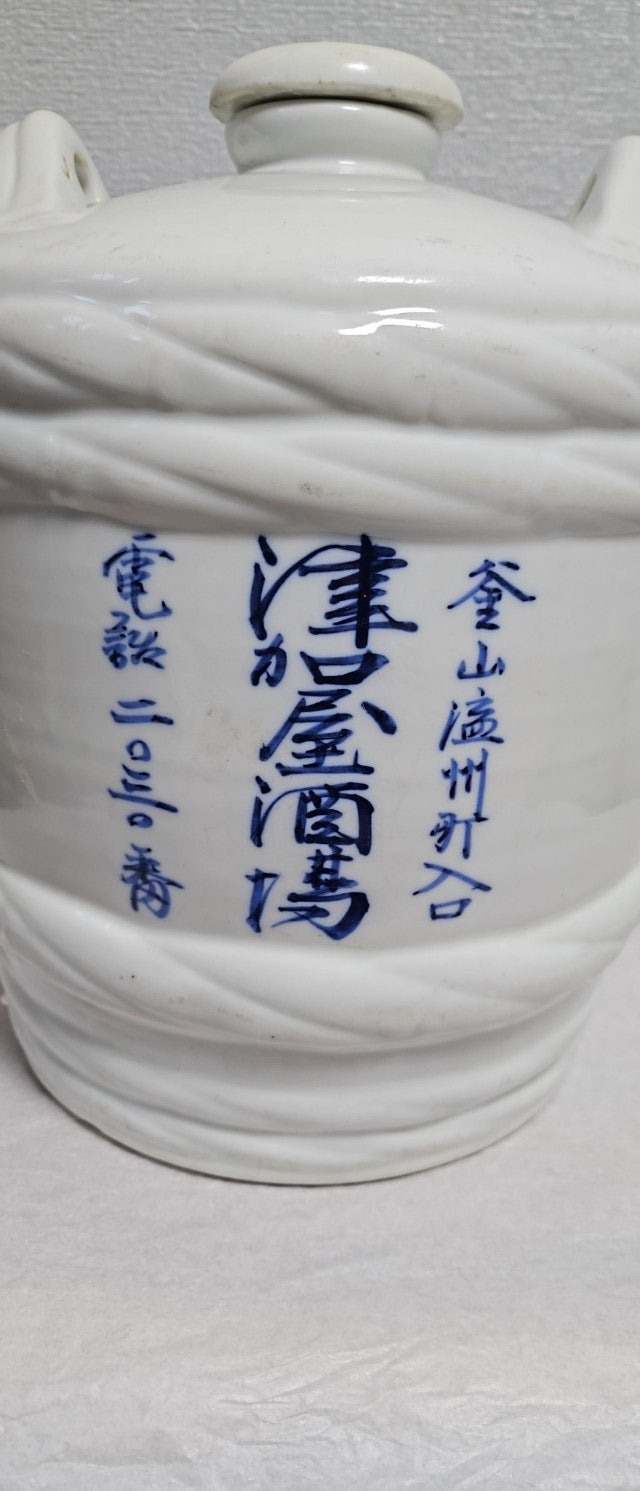 釜山溢州町入口
津加屋酒場
電話 二〇三〇番